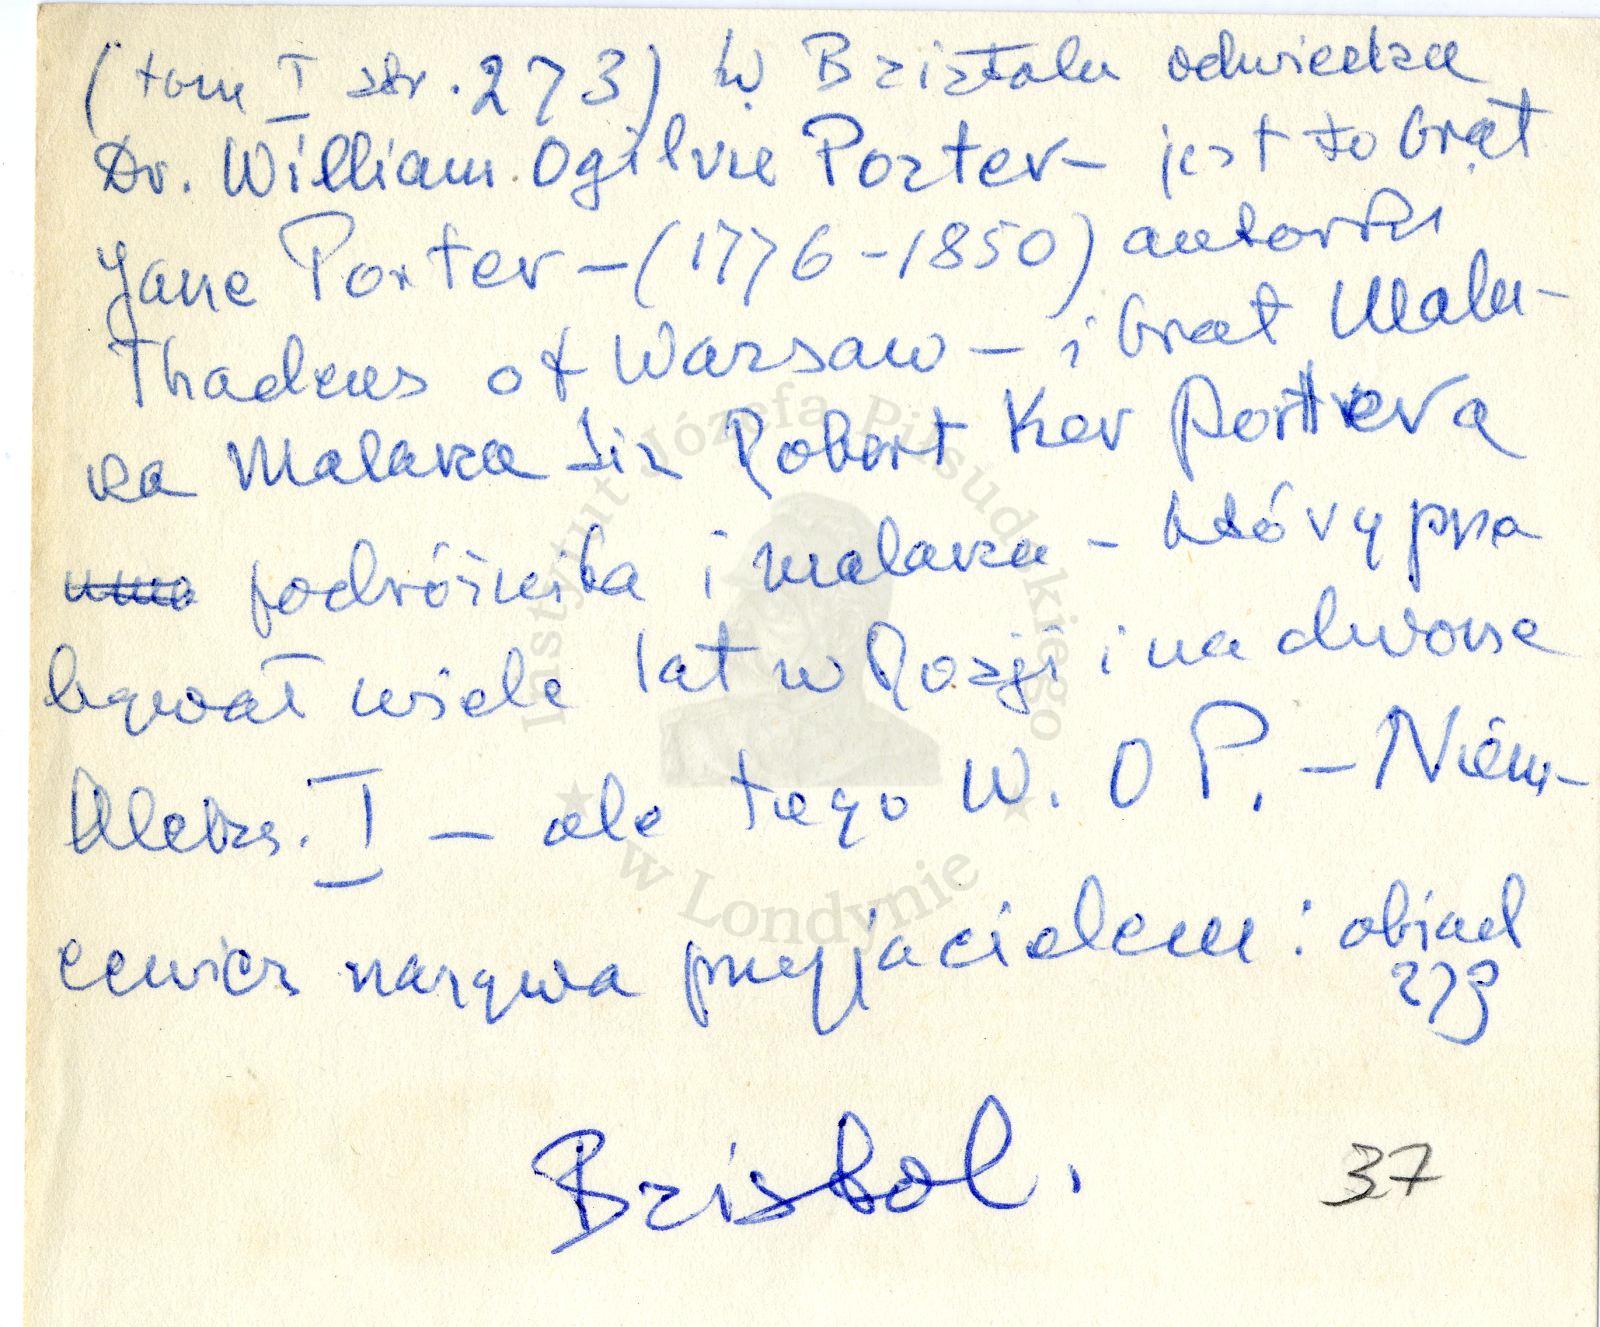 (tom I str. 273) w Bristolu odwiedza
Dr. William Ogilvie Porter – jest to brat
Jane Porter – (1776 – 1850) autorki
Thadeus of Warsaw – i brat Mala-
za Malarza Sir Robert Ker Portera
podróżnika i malarza – który prze
bywał wiele lat w Rosji i na dworze
Aleks. I – ale tego W. O P. – Niem-
cewicz nazywa przyjacielem : obiad
273
Bristol.
37
Instytut Józefa Piłsudskiego
w Londynie